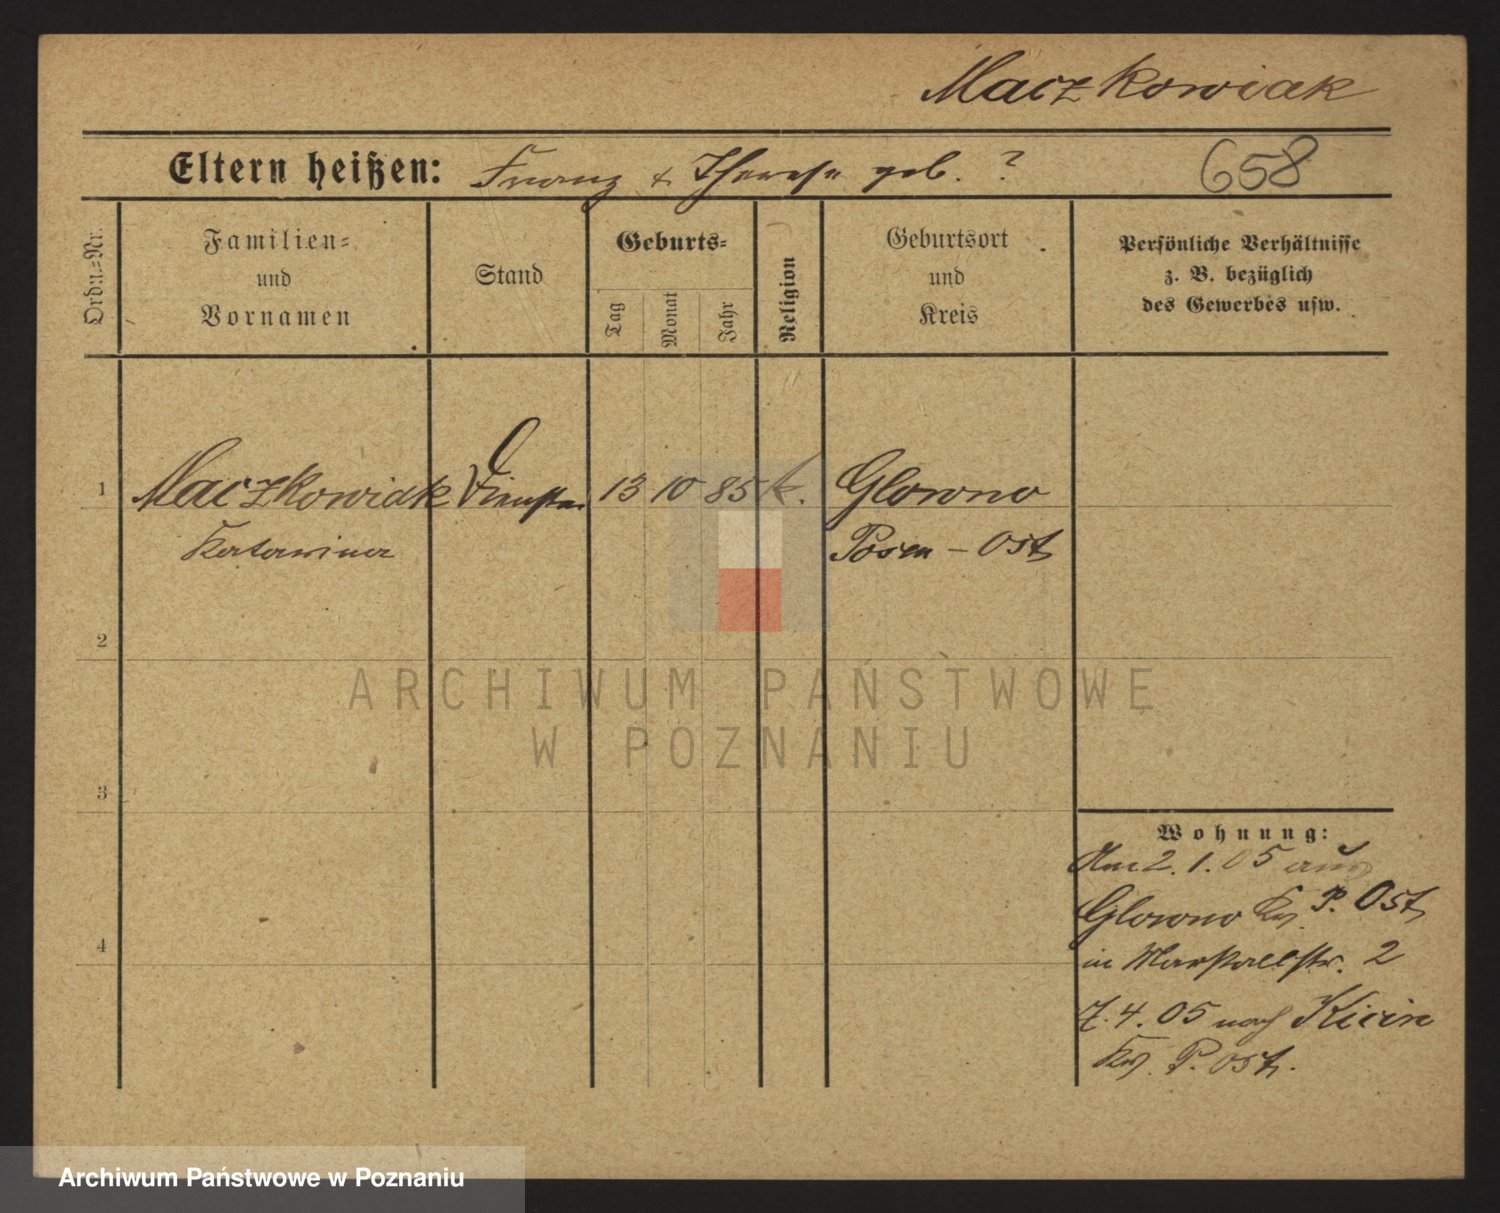 Maczkowiak
Eltern heißen: Franz & Therese geb. ?
658
Ordn.=Nr.
Familien=
und
Vornamen
Stand
Geburts=
Tag
Monat
Jahr
Religion
Geburtsort
und
Kreis
Persönliche Verhältnisse
z. B. bezüglich
des Gewerbes usw.
1 Maczkowiak 13 10 85 k. Glowno
Katarina Posen - Ost
2
ARCHIWUM PAŃSTWOWE
W POZNANIU
3
Wohnung:
Am 2. 1. 05 aus
Glowno Krs. P. Ost
4
in Marstallstr. 2
7. 4. 05 nach Kicin
Krs. P. Ost.
Archiwum Państwowe w Poznaniu